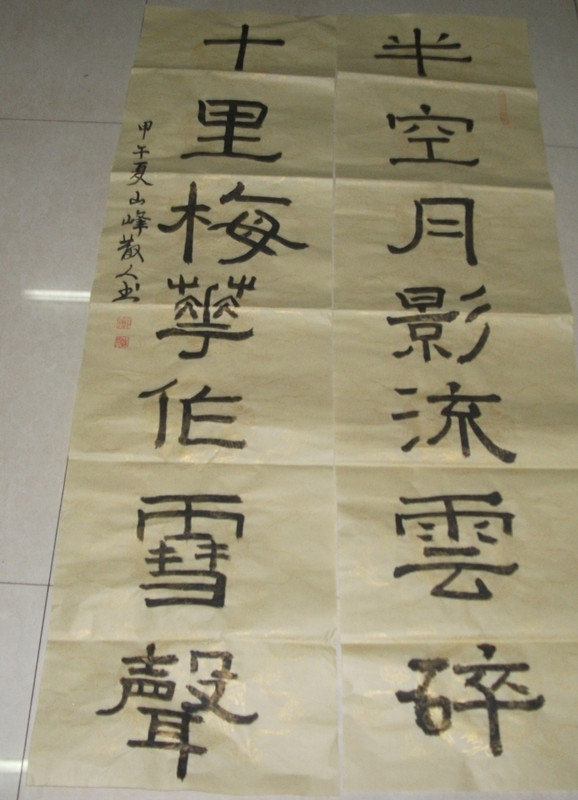 半空月影流雲碎
十里梅華作雪聲
甲午夏山峰散人书